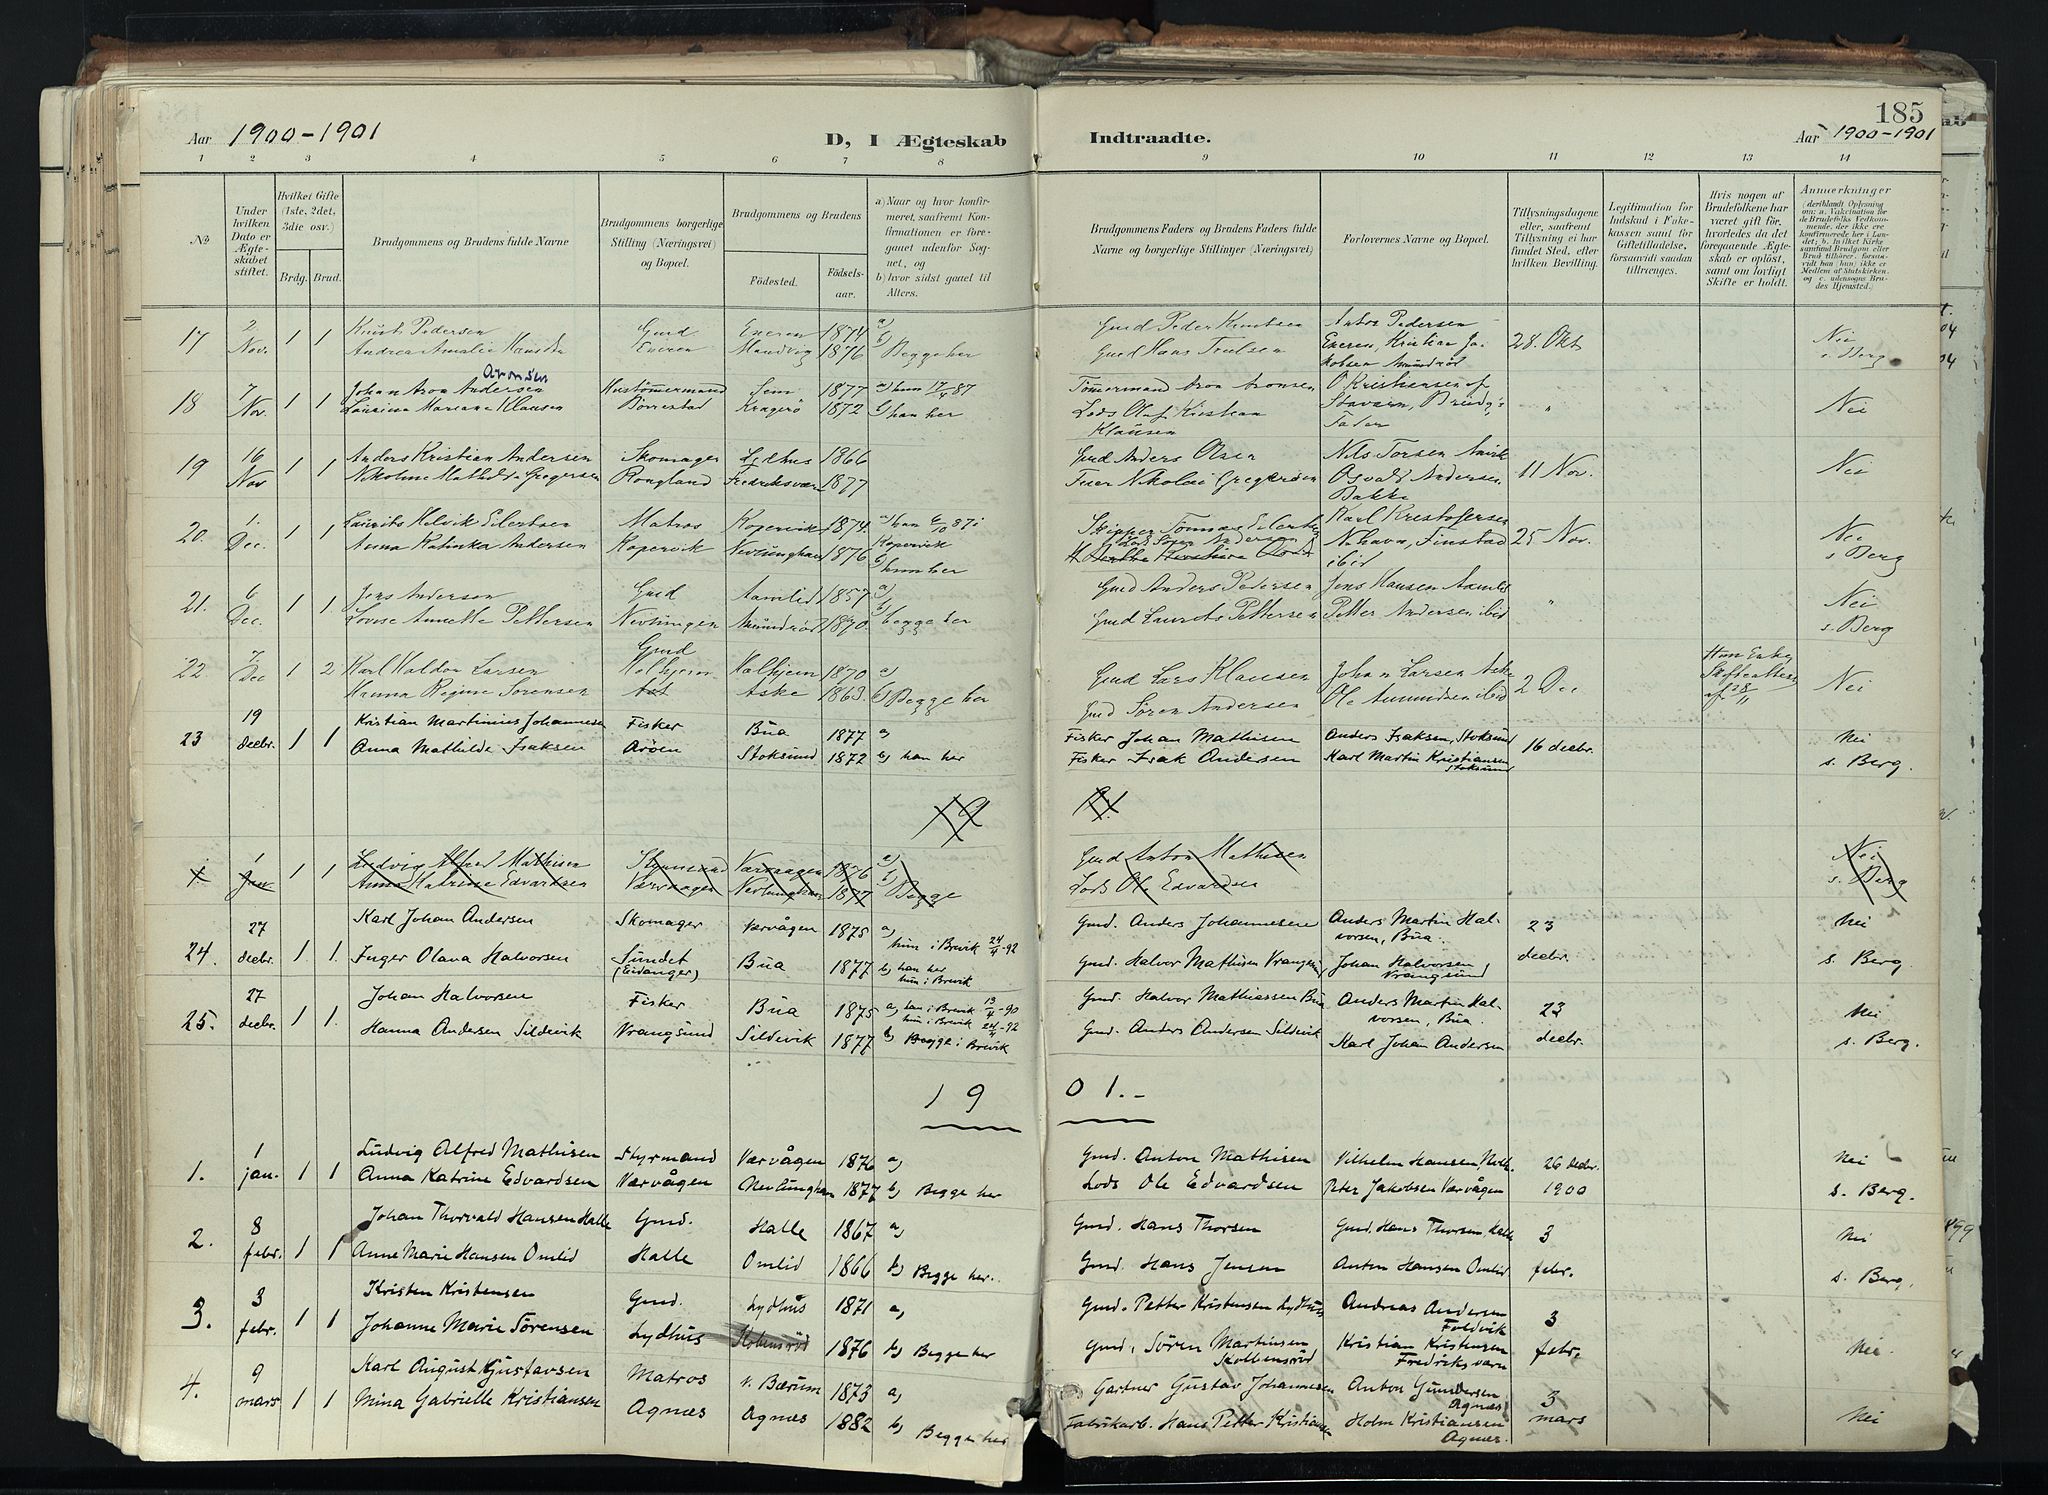 185
Aar 1900-1901
D, I Ægteskab Indtraadte.
Aar 1900-1901
1 2 3 4 5 6 7 8 9 10 11 12 13 14
No
Under hvilken Dato er Ægteskabet stiftet.
Hvilket Gifte (1ste, 2det, 3die osv.)
Brdg. Brud.
Brudgommens og Brudens fulde Navne
Brudgommens borgerlige Stilling (Næringsvei) og Bopæl.
Brudgommens og Brudens
Födested.
Födselsaar.
a) Naar og hvor konfirmeret, saafremt Konfirmationen er foregaaet udenfor Sognet, og
b) hvor sidst gaaet til Alters.
Brudgommens Faders og Brudens Faders fulde Navne og borgerlige Stillinger (Næringsvei)
Forlovernes Navne og Bopæl.
Tillysningsdagene eller, saafremt Tillysning ei har fundet Sted, efter hvilken Bevilling.
Legitimation for Indskud i Enkekassen samt for Giftetilladelse, forsaavidt saadan tiltrænges.
Hvis nogen af Brudefolkene har været gift før, hvorledes da det foregaaende Ægteskab er oplöst, samt om lovligt Skifte er holdt.
Anmærkninger
17 2 Nov. 1 1 Knut Pedersen Gmd Eneren 1874 a) Gmd Peder Knutsen Anton Pedersen 28. Okt Nei
Andrea Amalie Hansen Eneren Mandvig 1876 b) Begge her Gmd Hans Truelsen Eneren, Kristian Jakobsen s. Berg
Aronsen
18 7 Nov. 1 1 Johan Aron Andersen Hustömmermand Sem 1877 a) hun 17/4 87 Tömmermand Aron Aronsen O Kristiansen af " Nei
Laurina Mariane Klausen Borrestad Kragerö 1872 b) han her Lods Oluf Kristian Klausen Stavern, Brudg's Fader
19 16 Nov 1 1 Anders Kristian Andersen Skomager Lydhus 1866 Gmd Anders Olsen Nils Torsen 11 Nov. Nei
Nikoline Mathilda Gregersen Rongland Fredriksværn 1877 Nikolai Gregersen Osvald Andersen Bakke
20. 1. Dec. 1 1 Laurits Helvik Eilertsen Matros Kopervik 1874. a) han 6/10 87 i Kopervik Skipper Tönnes Eilertsen Karl Kristofersen 25 Nov. Nei
Anna Katinka Andersen Kopervik Nevlunghavn 1876 b) hun her Lods Sören Andersen N.havn, Finstad ibid s. Berg
21. 6 Dec. 1 1 Jens Andersen Gmd Aamlid 1857 a) Gmd Anders Pedersen Jens Hansen " Nei
Lovise Annette Pettersen Nevlungen Amundröd 1870. b) begge her Gmd Laurits Pettersen Petter Andersen ibid s. Berg
22 7. Dec 1 2 Karl Haldor Larsen Gmd Holhjem 1870 a) Gmd Lars Klausen Johan Larsen Aske 2 Dec Hun Enke Skifteattest af 28/11 Nei
Hanna Regine Sörensen Holhjem Aske 1863. b) Begge her Gmd Sören Andersen Ole Amundsen ibid
23 19 decbr. 1 1 Kristian Martinius Johannesen Fisker Bua 1877 a) Fisker Johan Mathisen Anders Isaksen, Stoksund 16 decbr. Nei
Anna Mathilde Isaksen Aröen Stoksund 1872 b) han her Fisker Isak Andersen Karl Martin Kristiansen Stoksund s. Berg.
19 01.
1. 1 Jan 1 1 Ludvig Alfred Mathisen Styrmand Værvaagen 1876 a) Gmd Anton Mathisen Nei
Anna Katrine Edvardsen Værvaagen Nevlunghavn 1877 b) Begge Lods Ole Edvardsen s. Berg
24. 27 decbr. 1. 1. Karl Johan Andersen Skomager Værvågen 1875 a) hun i Brevik 24/4-92 Gmd. Anders Johannesen Anders Martin Halvorsen, Bua. 23 decbr. Nei
Inger Olava Halvorsen Sundet (Eidanger) Bua 1877 b) han her hun i Brevik Gmd. Halvor Mathisen Vrangsund Johan Halvorsen Vrangsund s. Berg.
25. 27 decbr. 1 1. Johan Halvorsen Fisker Bua 1875 a) han i Brevik 13/4-90 hun i Brevik 24/4-92 Gmd. Halvor Mathiassen Bua Anders Martin Halvorsen, Bua. 23 decbr. Nei
Hanna Andersen Sildevik Vrangsund Sildevik 1877 b) Begge i Brevik Gmd. Anders Andersen Sildevik Karl Johan Andersen s. Berg.
19 01.-
1. 1 jan. 1 1 Ludvig Alfred Mathisen Styrmand Værvågen 1876 a) Gmd. Anton Mathisen Vilhelm Hansen, 26 decbr. Nei
Anna Katrine Edvardsen Værvågen Nevlunghavn 1877 b) Begge her Lods Ole Edvardsen Peter Jakobsen Værvågen 1900 s. Berg.
2. 8 febr. 1 1 Johan Thorvald Hansen Halle Gmd. Halle 1867 a) Gmd. Hans Thorsen Gmd. Hans Thorsen, Halle 3 Nei
Anne Marie Hansen Omlid Halle Omlid 1866 b) Begge her. Gmd. Hans Jensen Anton Hansen Omlid febr. s. Berg.
3. 3 febr. 1 1 Kristen Kristensen Gmd. Lydhus 1871 a) Gmd. Petter Kristensen Lydhus Andreas Andersen Foldvik 3
Johanne Marie Sörensen Lydhus 1876 b) Begge her Gmd. Sören Martinsen Skolbensröd Kristian Kristensen Fredriksværn febr. Nei.
4. 9 mars 1 1 Karl August Gustavsen Matros v. Bærum 1873 a) Gartner Gustav Johannesen Anton Gundersen Agnæs 3
Mina Gabrielle Kristiansen Agnæs Agnæs 1882 b) Begge her Fabrikarb. Hans Petter Kristiansen Holm Kristiansen Agnæs. mars Nei